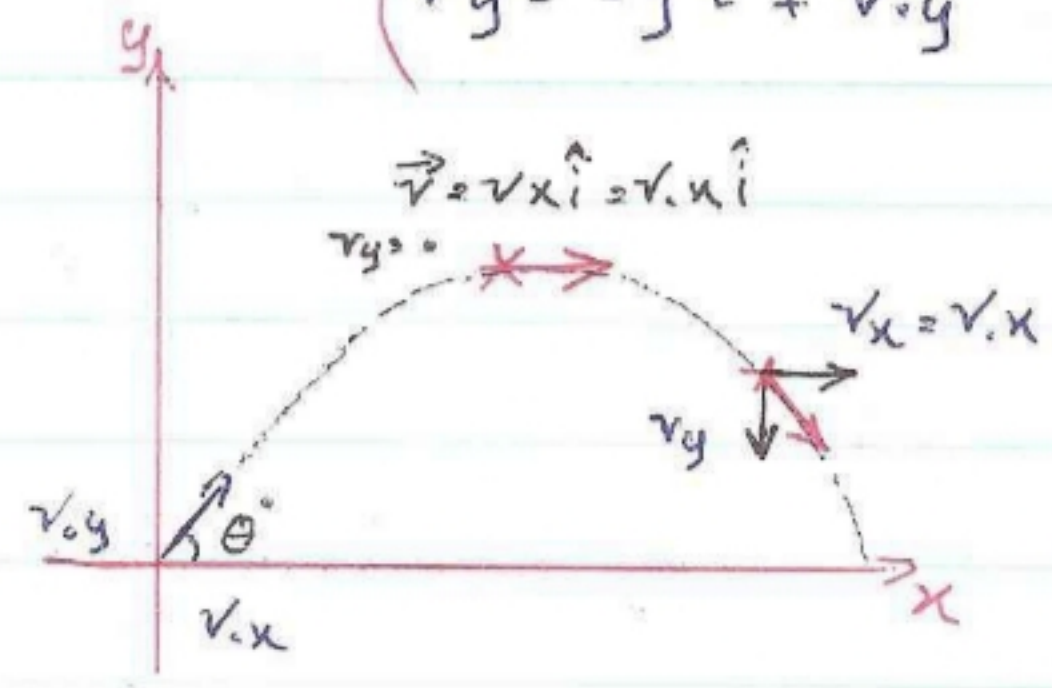 vy = -gt + v.y
y
v⃗ = vx î = v.x î
vy = 0
vx = v.x
vy
v.y
θ°
v.x
x